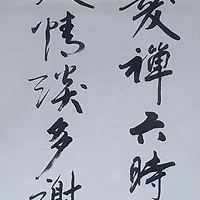 禪六時
情淡多謝